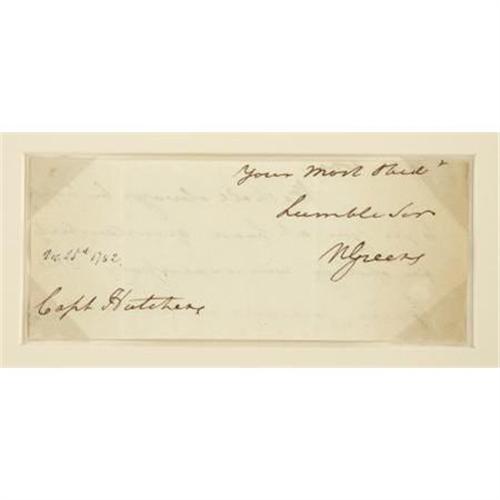 Your Most Obedt
humble Ser
NGreene
Dec. 25th 1782.
Capt Hutchens